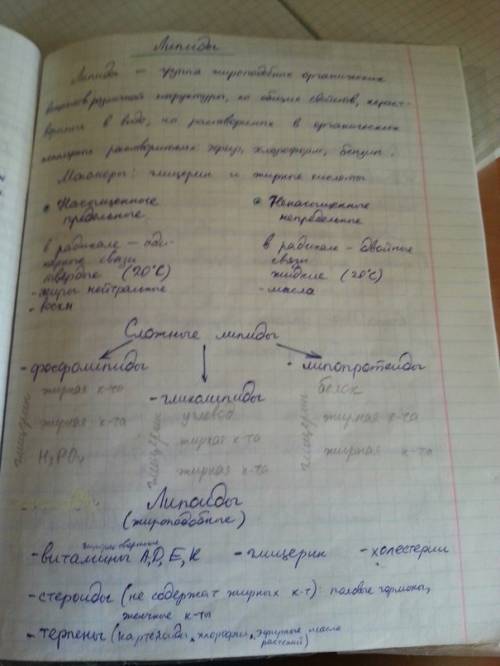 Липиды
Липиды — группа жироподобных органических
веществ различной структуры, но общих свойств, нераст-
воримы в воде, но растворимых в органических
растворителях эфир, хлороформ, бензин.
Мономеры: глицерин и жирные кислоты
Насыщенные
предельные
Ненасыщенные
непредельные
в радикале – оди-
нарные связи
твердые (20°C)
- жиры нейтральные
- воски
в радикале – двойные
связи
жидкие (20°C)
- масла
Сложные липиды
- фосфолипиды
- гликолипиды
- липопротеиды
глицерин
жирная к-та
жирная к-та
H3PO4
глицерин
углевод
жирная к-та
жирная к-та
глицерин
белок
жирная к-та
жирная к-та
Липоиды
(жироподобные)
жирорастворимые
- витамины A, D, E, K - глицерин - холестерин
- стероиды (не содержат жирных к-т): половые гормоны,
желчные к-ты
- терпены (каротиноиды, хлорофилл, эфирные масла
растений)